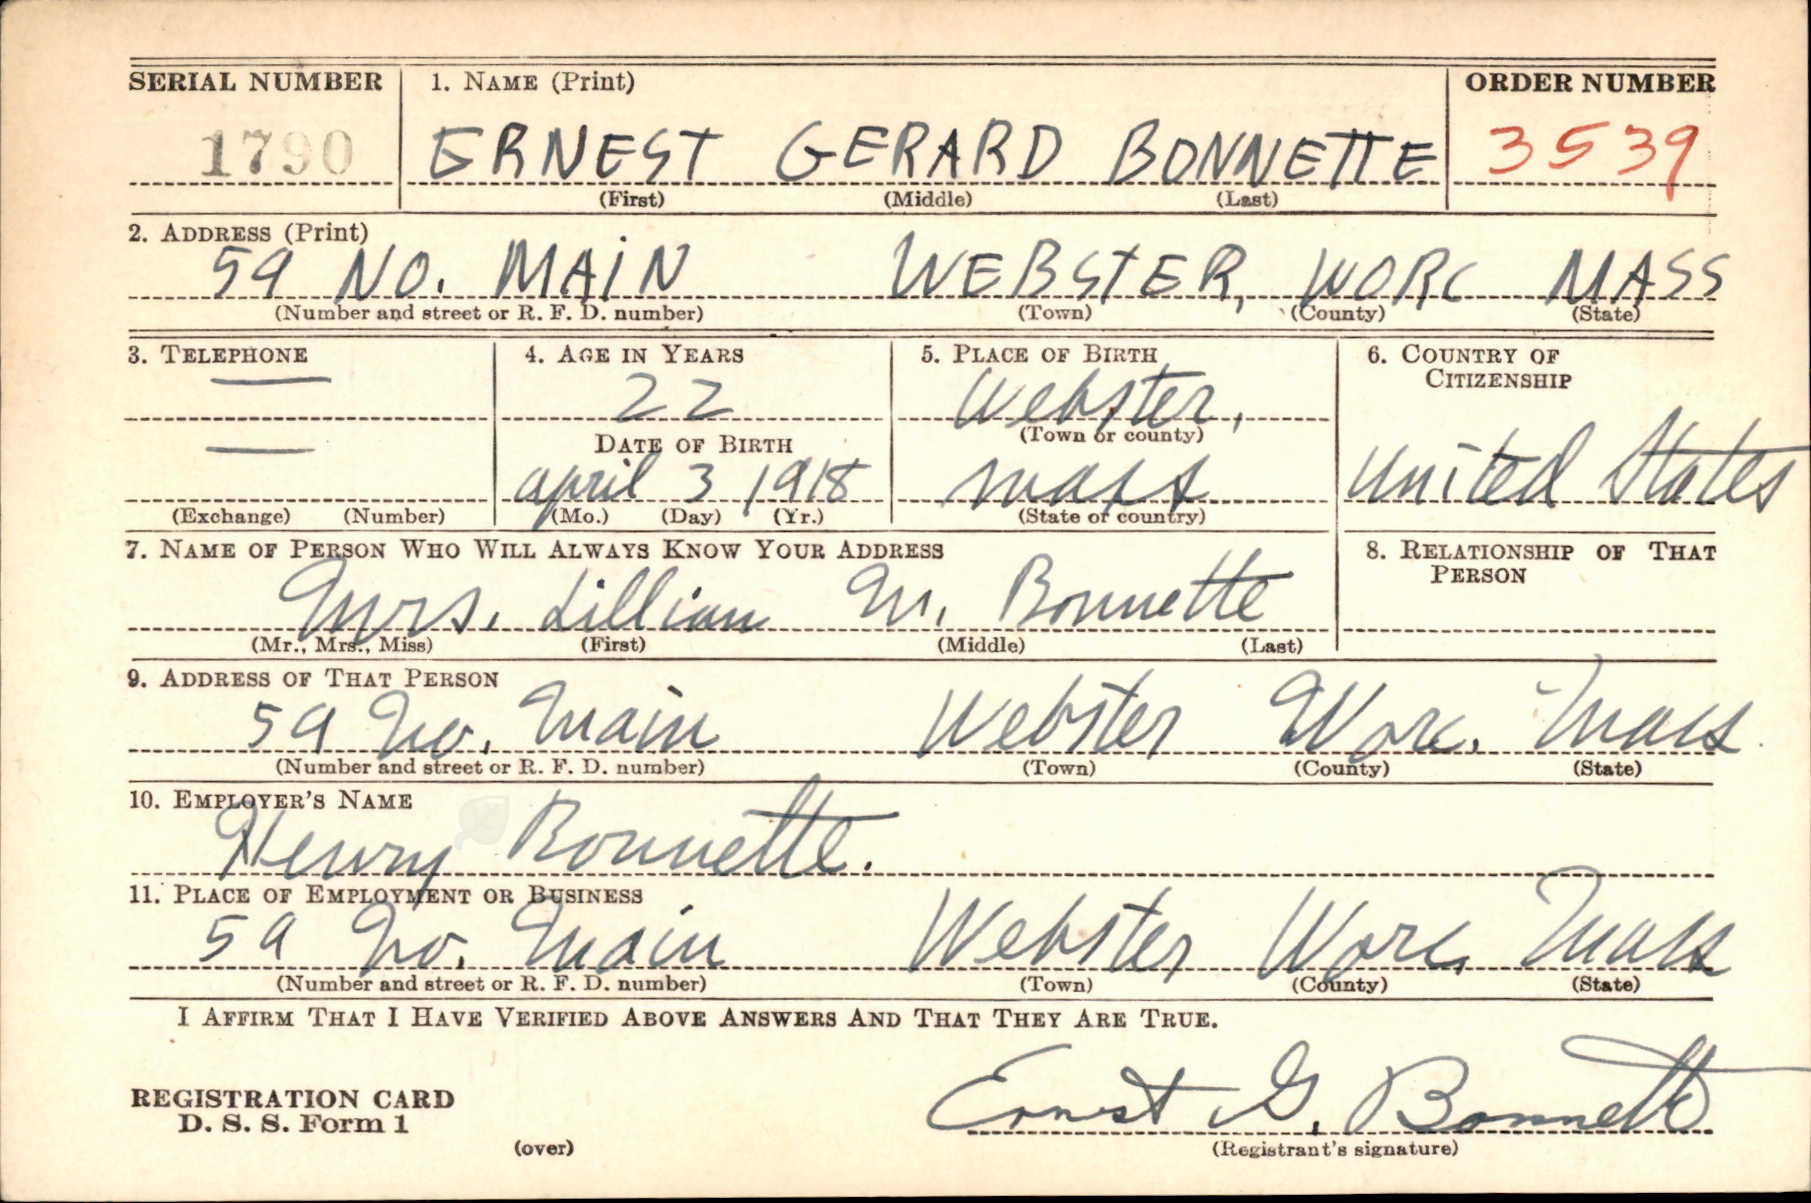 SERIAL NUMBER 1. NAME (Print) ORDER NUMBER
1790 ERNEST GERARD BONNETTE 3539
(First) (Middle) (Last)
2. ADDRESS (Print)
59 NO. MAIN WEBSTER, WORC MASS
(Number and street or R. F. D. number) (Town) (County) (State)
3. TELEPHONE 4. AGE IN YEARS 5. PLACE OF BIRTH 6. COUNTRY OF
CITIZENSHIP
— 22 Webster,
DATE OF BIRTH (Town or county)
— april 3 1918 mass United States
(Exchange) (Number) (Mo.) (Day) (Yr.) (State or country)
7. NAME OF PERSON WHO WILL ALWAYS KNOW YOUR ADDRESS 8. RELATIONSHIP OF THAT
PERSON
Mrs. Lillian M. Bonnette
(Mr., Mrs., Miss) (First) (Middle) (Last)
9. ADDRESS OF THAT PERSON
59 No. Main Webster Worc. Mass
(Number and street or R. F. D. number) (Town) (County) (State)
10. EMPLOYER'S NAME
Henry Bonnette.
11. PLACE OF EMPLOYMENT OR BUSINESS
59 No. Main Webster Worc. Mass
(Number and street or R. F. D. number) (Town) (County) (State)
I AFFIRM THAT I HAVE VERIFIED ABOVE ANSWERS AND THAT THEY ARE TRUE.
REGISTRATION CARD
D. S. S. Form 1
Ernest G. Bonnette
(over) (Registrant's signature)